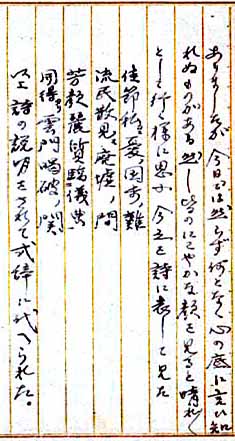 ありましたが今日では然らず何となく心の底に言ひ知
れぬものがある然し皆のにこやかな顔を見ると晴れ〲
として行く様に思ふ今之を詩に表して見た
佳節稀憂国歩難
流民散見廃墟間
芳教麗質臨儀典
同得雲門喝破関
以上詩の説明をされて式辞に代へられた。